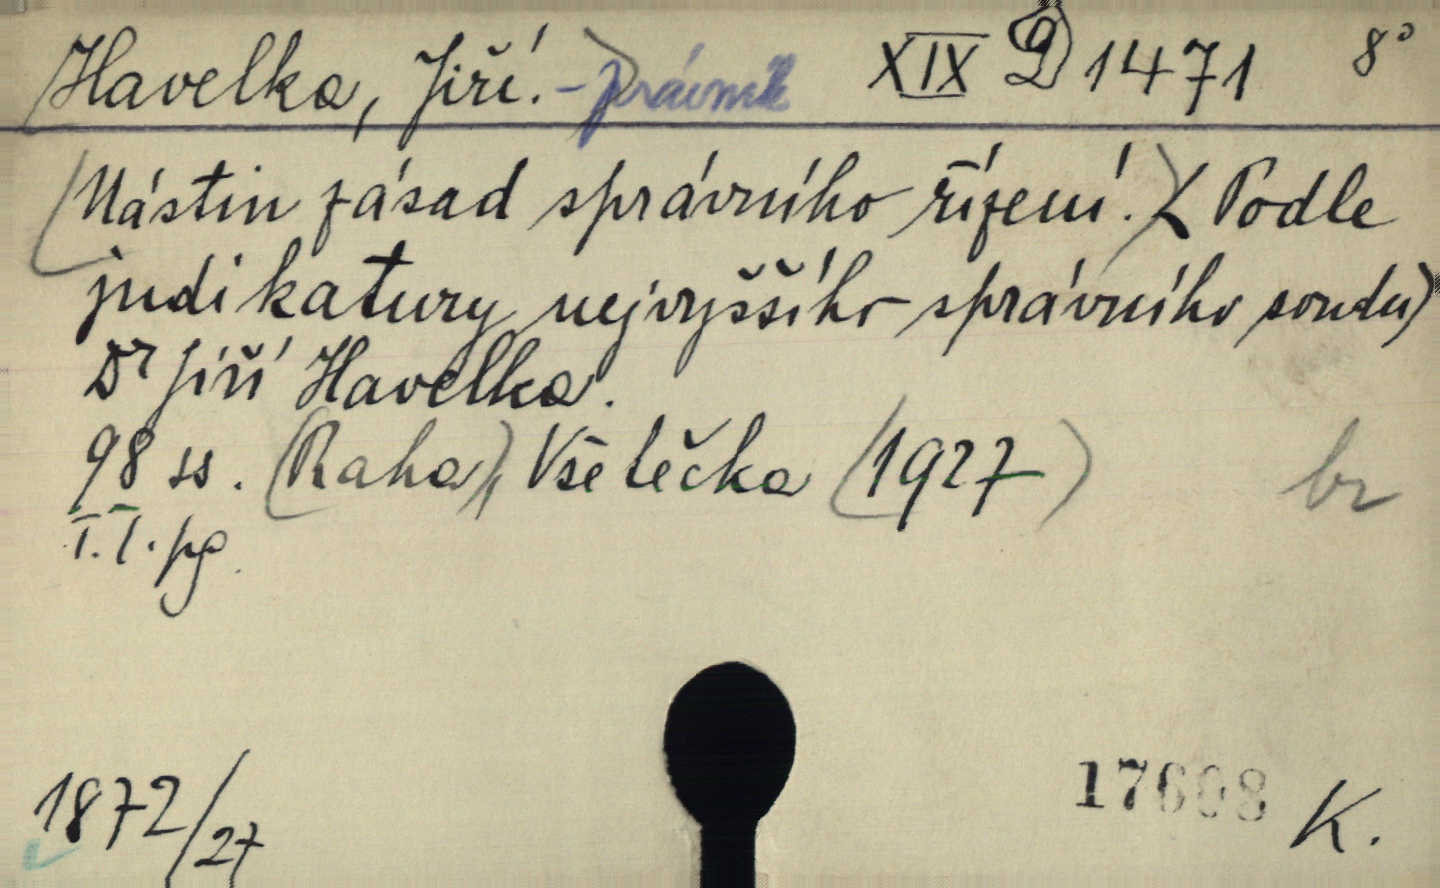 Havelka, Jiří. - právník XIX D 1471 8°
Nástin zásad správního řízení. (Podle
judikatury nejvyššího správního soudu)
Dr Jiří Havelka.
98 ss. (Praha), Všetečka (1927) br
I. I. pg.
1872/27
17608 K.